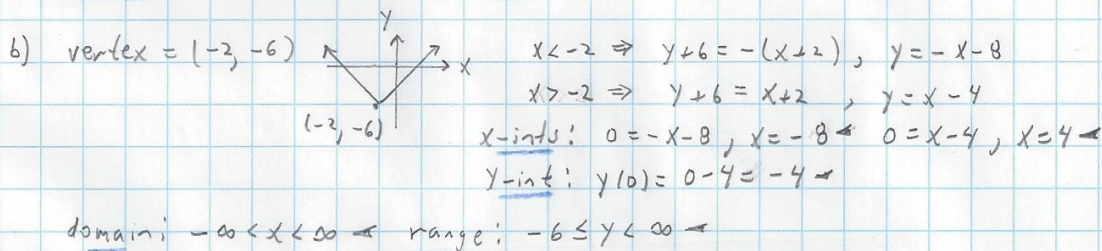 b) vertex = (-2, -6) y x (-2, -6)
x<-2 ⇒ y+6 = -(x+2), y = -x-8
x>-2 ⇒ y+6 = x+2, y = x-4
x-ints: 0 = -x-8, x = -8 0 = x-4, x = 4
y-int: y(0) = 0-4 = -4
domain: -∞ < x < ∞ range: -6 ≤ y < ∞